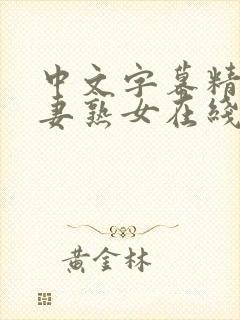 中文字幕精
妻熟女在綫
黄金林